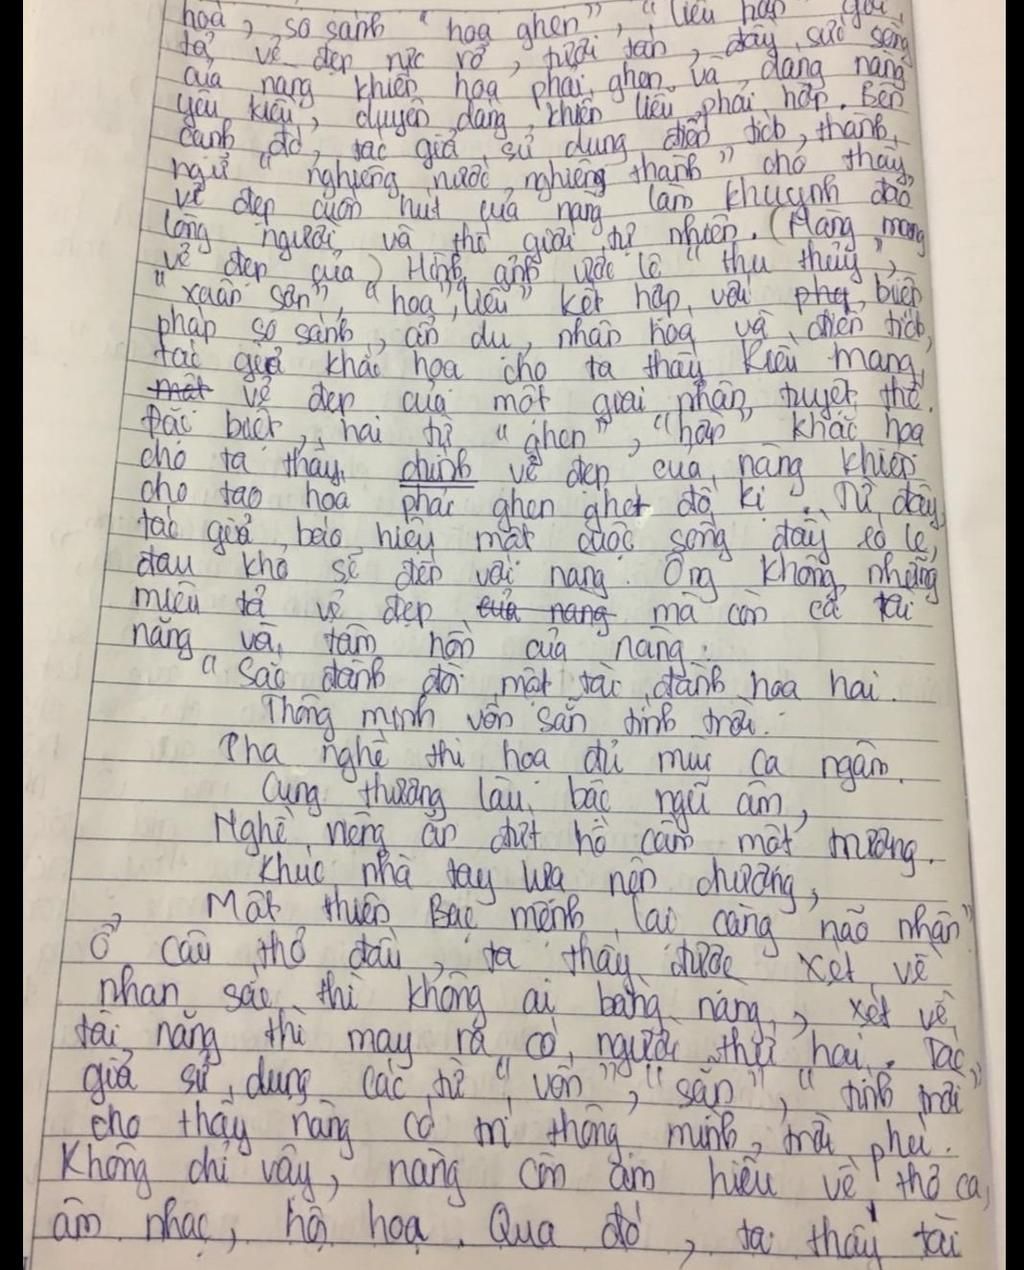 hoá, so sánh "hoa ghen", "liễu hờn" gợi
tả vẻ đẹp rực rỡ, tươi tắn, đầy sức sống
của nàng khiến hoa phải ghen và dáng nàng
yêu kiều, duyên dáng khiến liễu phải hờn. Bên
cạnh đó, tác giả sử dụng điển tích, thành
ngữ "nghiêng nước nghiêng thành" cho thấy
vẻ đẹp cuốn hút của nàng làm khuynh đảo
lòng người và thế giới tự nhiên. (Mang mang
vẻ đẹp của) Hình ảnh ước lệ "thu thủy",
"xuân sơn", "hoa", "liễu" kết hợp với phép biện
pháp so sánh, ẩn dụ, nhân hóa và điển tích,
tác giả khắc họa cho ta thấy Kiều mang
một vẻ đẹp của một giai nhân tuyệt thế.
Đặc biệt, hai từ "ghen", "hờn" khắc họa
cho ta thấy, chính vẻ đẹp của nàng khiến
cho tạo hóa phải ghen ghét đố kị. Từ đây,
tác giả báo hiệu một cuộc sống đầy éo le,
đau khổ sẽ đến với nàng. Ông không những
miêu tả vẻ đẹp của nàng mà còn cả tài
năng và tâm hồn của nàng:
"Sắc đành đòi một tài đành họa hai.
Thông minh vốn sẵn tính trời.
Pha nghề thi họa đủ mùi ca ngâm.
Cung thương lầu bậc ngũ âm,
Nghề riêng ăn đứt hồ cầm một trương.
Khúc nhà tay lựa nên chương,
Một thiên Bạc mệnh lại càng não nhân"
Ở câu thơ đầu, ta thấy được xét về
nhan sắc thì không ai bằng nàng, xét về
tài năng thì may ra có người thứ hai. Tác
giả sử dụng các từ "vốn", "sẵn", "tính trời"
cho thấy nàng có trí thông minh trời phú.
Không chỉ vậy, nàng còn am hiểu về thơ ca,
âm nhạc, hội họa. Qua đó, ta thấy tài